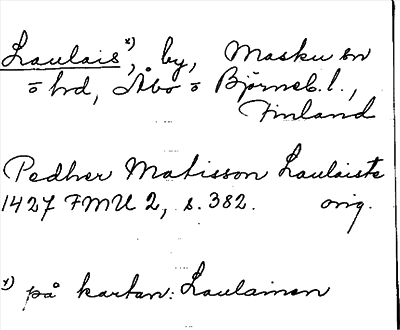 Laulais *), by, Masku sn
o hd, Åbo o Björneb. l.,
Finland
Pedher Matisson Laulaiste
1427 FMU 2, s. 382. orig.
*) på kartan: Laulainen